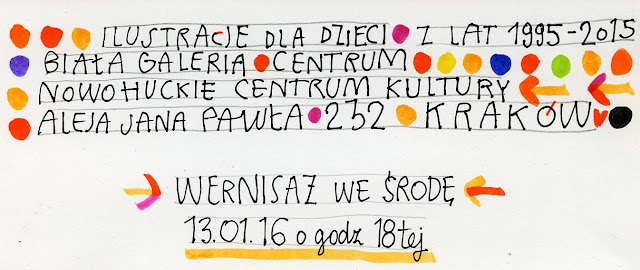 ILUSTRACJE DLA DZIECI Z LAT 1995-2015
BIAŁA GALERIA CENTRUM
NOWOHUCKIE CENTRUM KULTURY
ALEJA JANA PAWŁA 232 KRAKÓW
WERNISAŻ WE ŚRODĘ
13.01.16 o godz 18tej